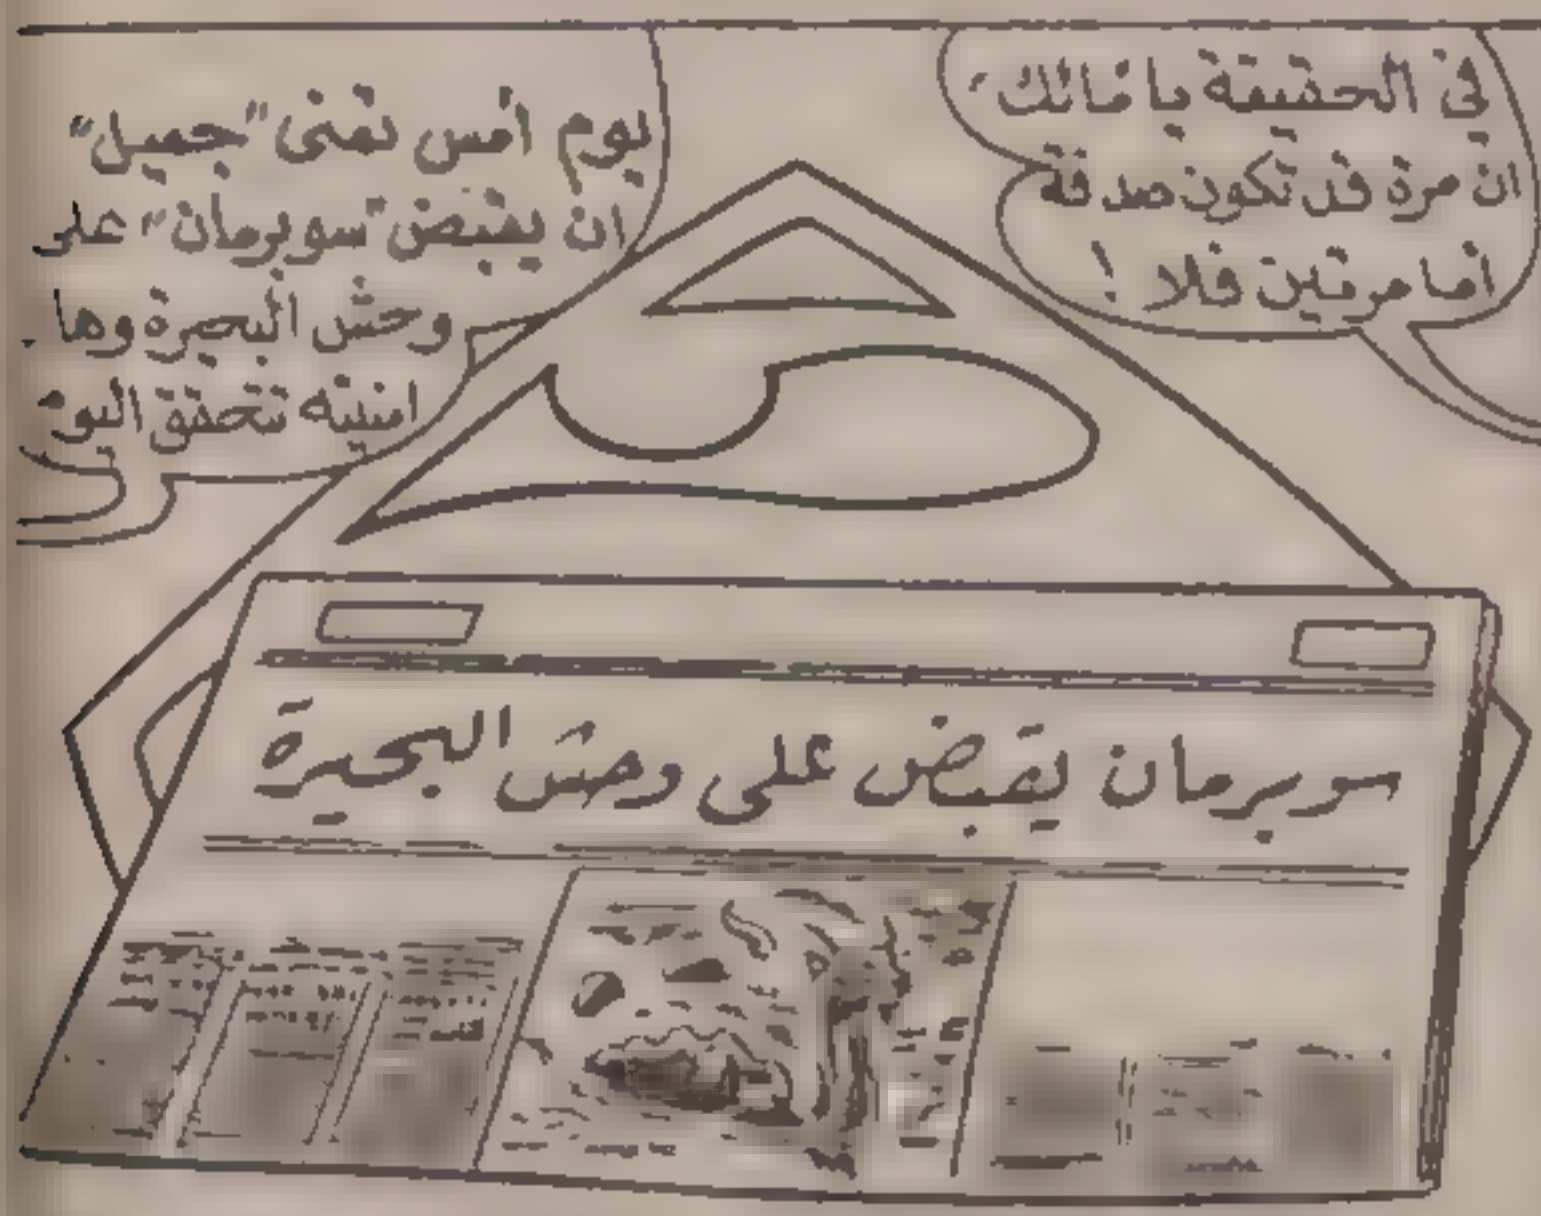 في الحقيقة يا مالك،
ان مرة قد تكون صدفة
أما مرتين فلا !
يوم أمس تمنى "جميل"
ان يقبض "سوبرمان" على
وحش البحيرة وها
امنيته تتحقق اليوم
سوبرمان يقبض على وحش البحيرة